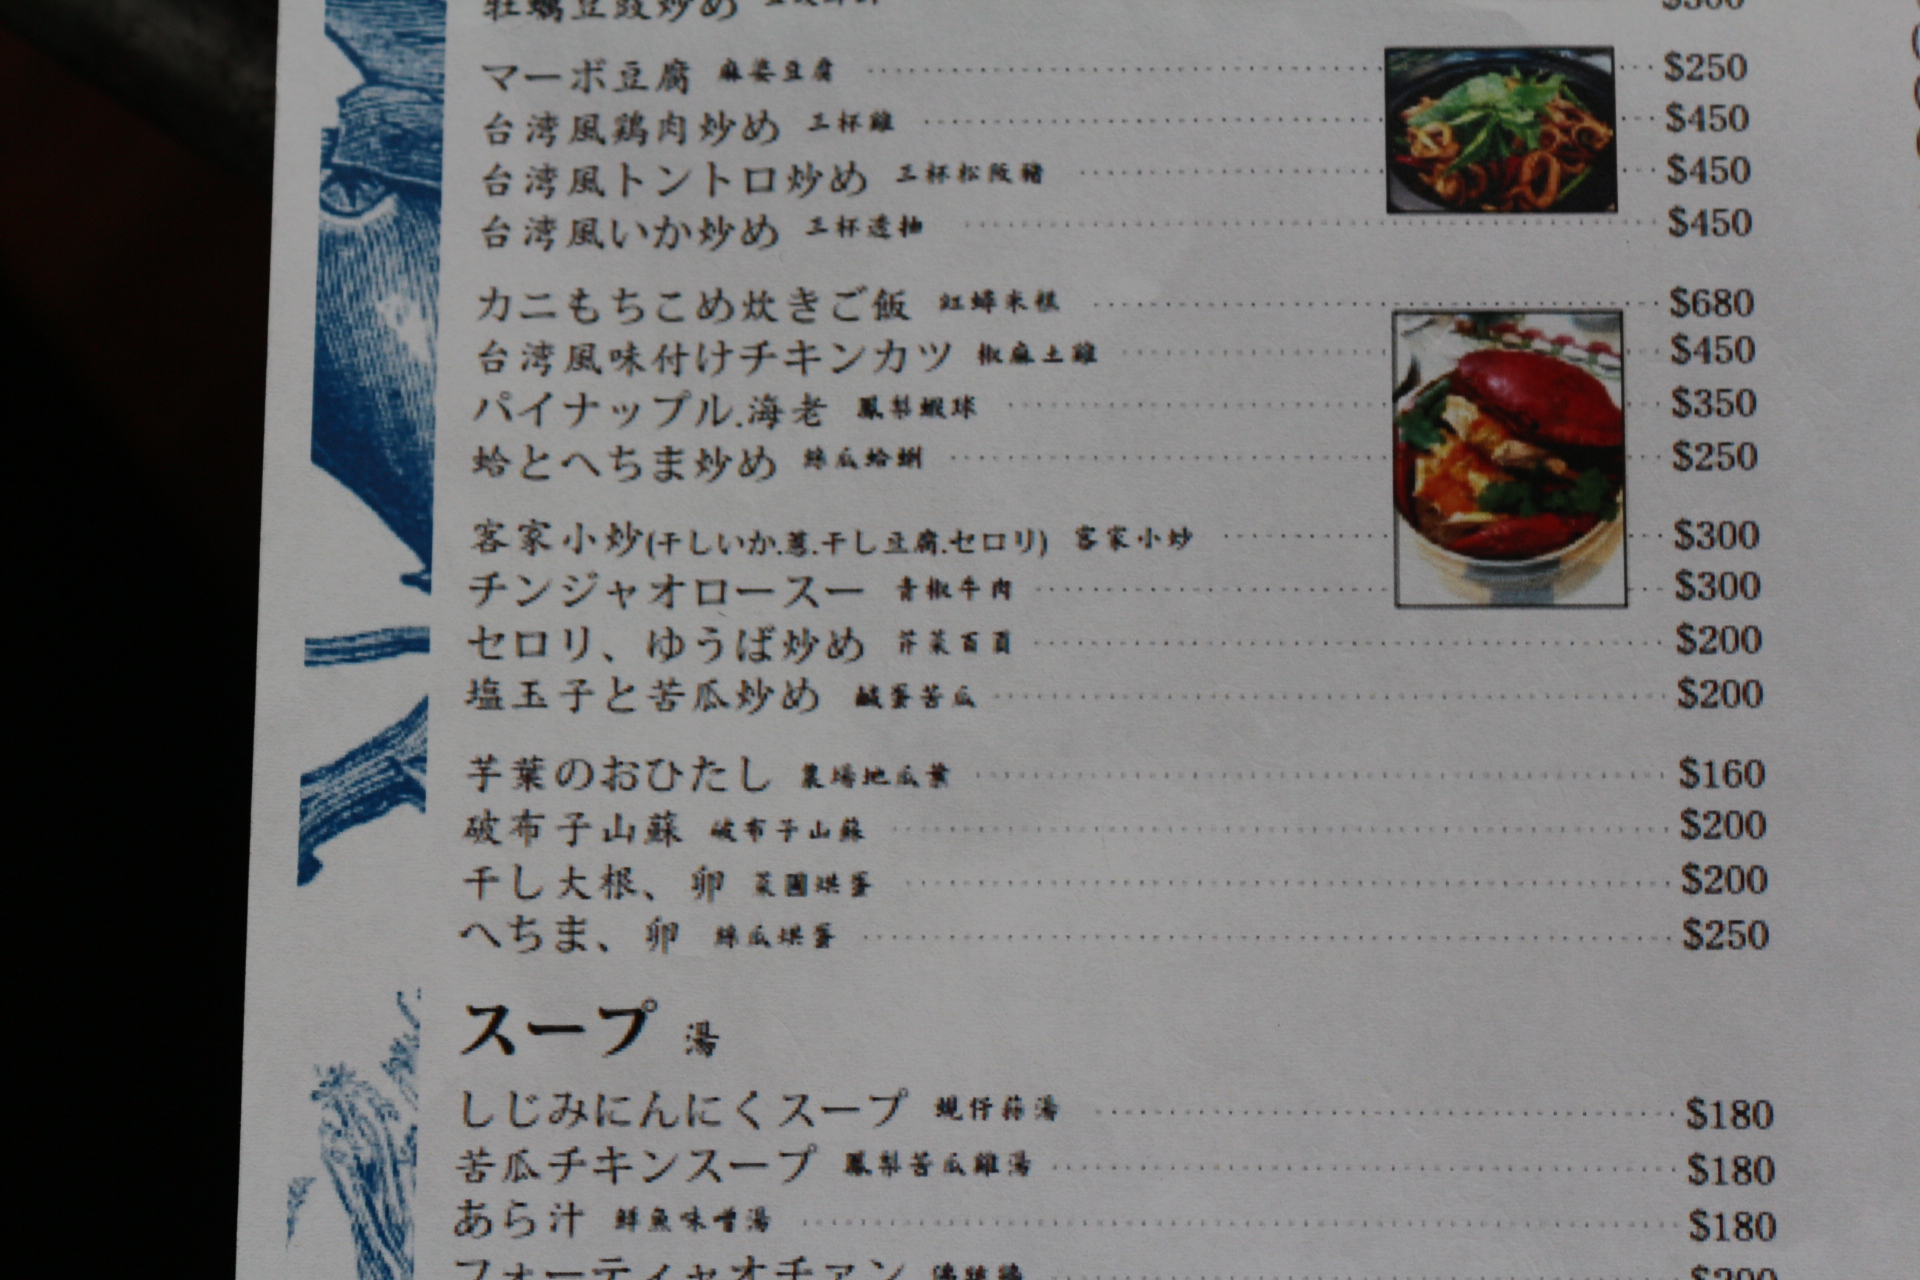 牡蠣豆豉炒め $300
マーボ豆腐 麻婆豆腐 $250
台湾風鶏肉炒め 三杯雞 $450
台湾風トントロ炒め 三杯松阪豬 $450
台湾風いか炒め 三杯透抽 $450
カニもちこめ炊きご飯 紅蟳米糕 $680
台湾風味付けチキンカツ 椒麻土雞 $450
パイナップル.海老 鳳梨蝦球 $350
蛤とへちま炒め 絲瓜蛤蜊 $250
客家小炒(干しいか.葱.干し豆腐.セロリ) 客家小炒 $300
チンジャオロースー 青椒牛肉 $300
セロリ、ゆうば炒め 芹菜百頁 $200
塩玉子と苦瓜炒め 鹹蛋苦瓜 $200
芋葉のおひたし 農場地瓜葉 $160
破布子山蘇 破布子山蘇 $200
干し大根、卵 菜圃烘蛋 $200
へちま、卵 絲瓜烘蛋 $250
スープ 湯
しじみにんにくスープ 蜆仔蒜湯 $180
苦瓜チキンスープ 鳳梨苦瓜雞湯 $180
あら汁 鮮魚味噌湯 $180
フォーティャオチァン 佛跳牆 $200